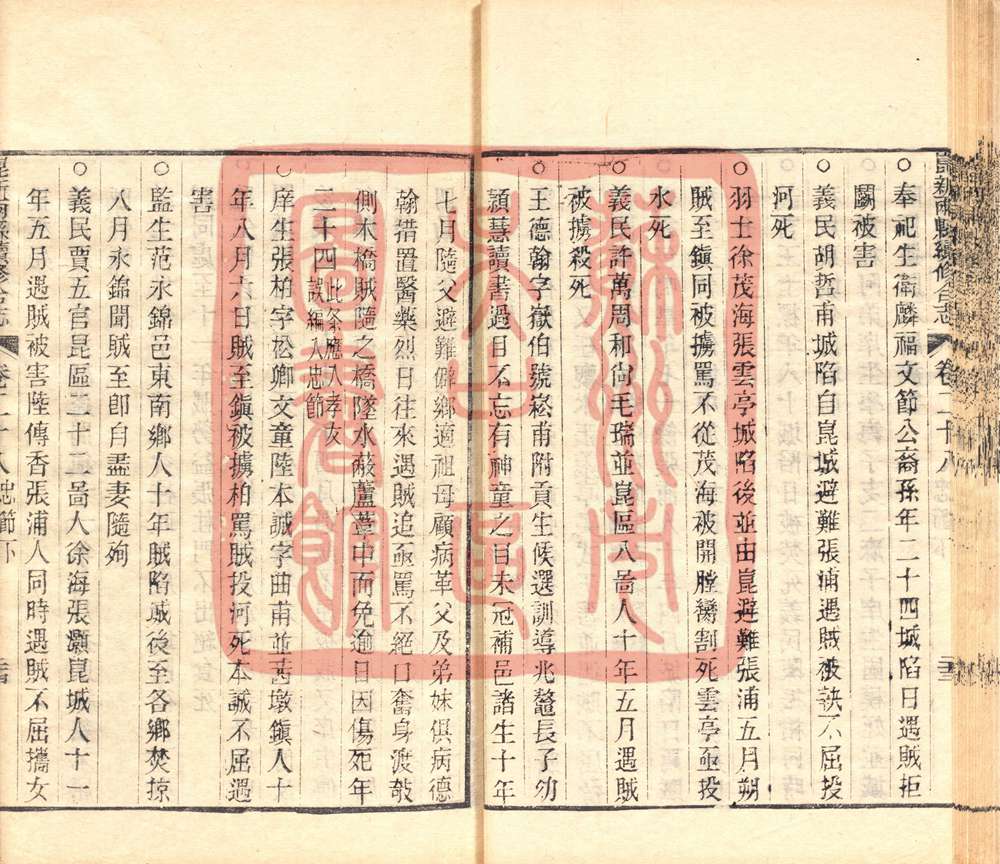 崑新兩縣續修合志 卷二十八 忠節下
○奉祀生衛麟福文節公裔孫年二十四城陷日遇賊拒
鬬被害
○義民胡哲甫城陷自崑城避難張浦遇賊被執不屈投
河死
○羽士徐茂海張雲亭城陷後並由崑避難張浦五月朔
賊至鎭同被擄罵不從茂海被開膛臠割死雲亭亟投
水死
○義民許萬周和尙毛瑞並崑區八啚人十年五月遇賊
被擄殺死
○王德翰字嶽伯號崧甫附貢生候選訓導兆鼇長子幼
頴慧讀書過目不忘有神童之目未冠補邑諸生十年
七月隨父避難僻鄉適祖母顧病革父及弟妹俱病德
翰措置醫藥烈日往來遇賊追亟罵不絕口奮身渡敧
側木橋賊隨之橋墜水蔽蘆葦中而免逾日因傷死年
二十四此条應入孝友誤編入忠節
○庠生張柏字松卿文童陸本誠字曲甫並茜墩鎭人十
年八月六日賊至鎭被擄柏罵賊投河死本誠不屈遇
害
○監生范永錦邑東南鄉人十年賊陷城後至各鄉焚掠
八月永錦聞賊至卽自盡妻隨殉
○義民賈五官昆區三十二啚人徐海張灝崑城人十一
年五月遇賊被害陸傳香張浦人同時遇賊不屈攜女
崑新兩縣續修合志 卷二十八 忠節下
蘇州市
人民
圖書館